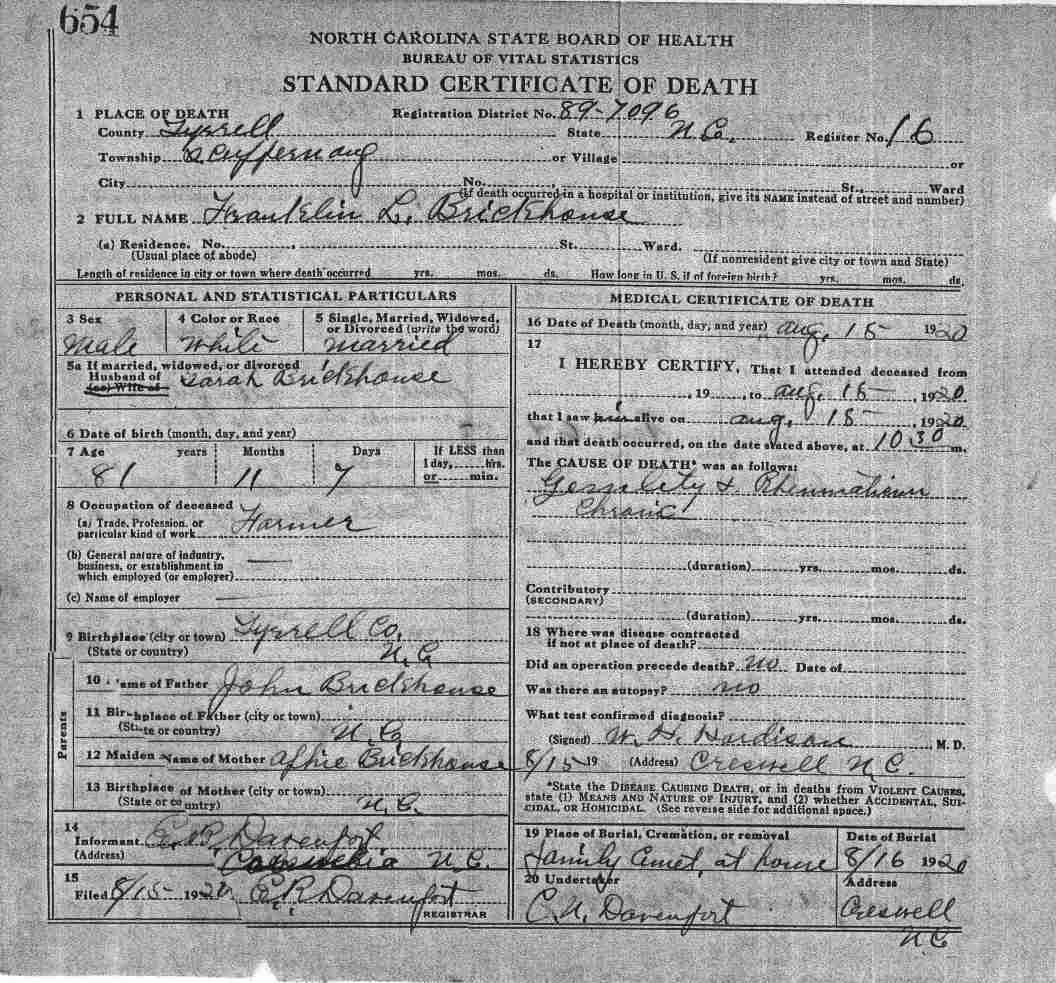 654
NORTH CAROLINA STATE BOARD OF HEALTH
BUREAU OF VITAL STATISTICS
STANDARD CERTIFICATE OF DEATH
1 PLACE OF DEATH Registration District No. 89-7096
County Tyrrell State N.C. Register No. 16
Township Scuppernong or Village or
City No. St., Ward
(If death occurred in a hospital or institution, give its NAME instead of street and number)
2 FULL NAME Franklin L. Brickhouse
(a) Residence. No. , St. Ward.
(Usual place of abode) (If nonresident give city or town and State)
Length of residence in city or town where death occurred yrs. mos. ds. How long in U. S. if of foreign birth? yrs. mos. ds.
PERSONAL AND STATISTICAL PARTICULARS
3 Sex 4 Color or Race 5 Single, Married, Widowed,
or Divorced (write the word)
Male White Married
5a If married, widowed, or divorced
Husband of Sarah Brickhouse
(or) Wife of
6 Date of birth (month, day, and year)
7 Age years Months Days If LESS than
1 day, hrs.
81 11 7 or min.
8 Occupation of deceased
(a) Trade, Profession, or
particular kind of work Farmer
(b) General nature of industry,
business, or establishment in
which employed (or employer)
(c) Name of employer
9 Birthplace (city or town) Tyrrell Co.
(State or country) N.C
10 Name of Father John Brickhouse
11 Birthplace of Father (city or town)
(State or country) N.C.
12 Maiden Name of Mother Affie Brickhouse
13 Birthplace of Mother (city or town)
(State or country) N.C.
Parents
14
Informant C. R. Davenport
(Address) Columbia N.C.
15
Filed 8/15 1920 C. R. Davenport
REGISTRAR
MEDICAL CERTIFICATE OF DEATH
16 Date of Death (month, day, and year) Aug. 15 1920
17
I HEREBY CERTIFY, That I attended deceased from
, 19 , to Aug. 15 , 1920
that I saw him alive on Aug. 15 , 1920
and that death occurred, on the date stated above, at 10 30 m.
The CAUSE OF DEATH* was as follows:
& Rheumatism
Chronic
(duration) yrs. mos. ds.
Contributory
(SECONDARY)
(duration) yrs. mos. ds.
18 Where was disease contracted
if not at place of death?
Did an operation precede death? no Date of
Was there an autopsy? no
What test confirmed diagnosis?
(Signed) W. H. Hardison M. D.
8/15 19 (Address) Creswell N.C.
*State the DISEASE CAUSING DEATH, or in deaths from VIOLENT CAUSES,
state (1) MEANS AND NATURE OF INJURY, and (2) whether ACCIDENTAL, SUI-
CIDAL, OR HOMICIDAL. (See reverse side for additional space.)
19 Place of Burial, Cremation, or removal Date of Burial
Family Cemet, at home 8/16 1920
20 Undertaker Address
C. N. Davenport Creswell
N.C